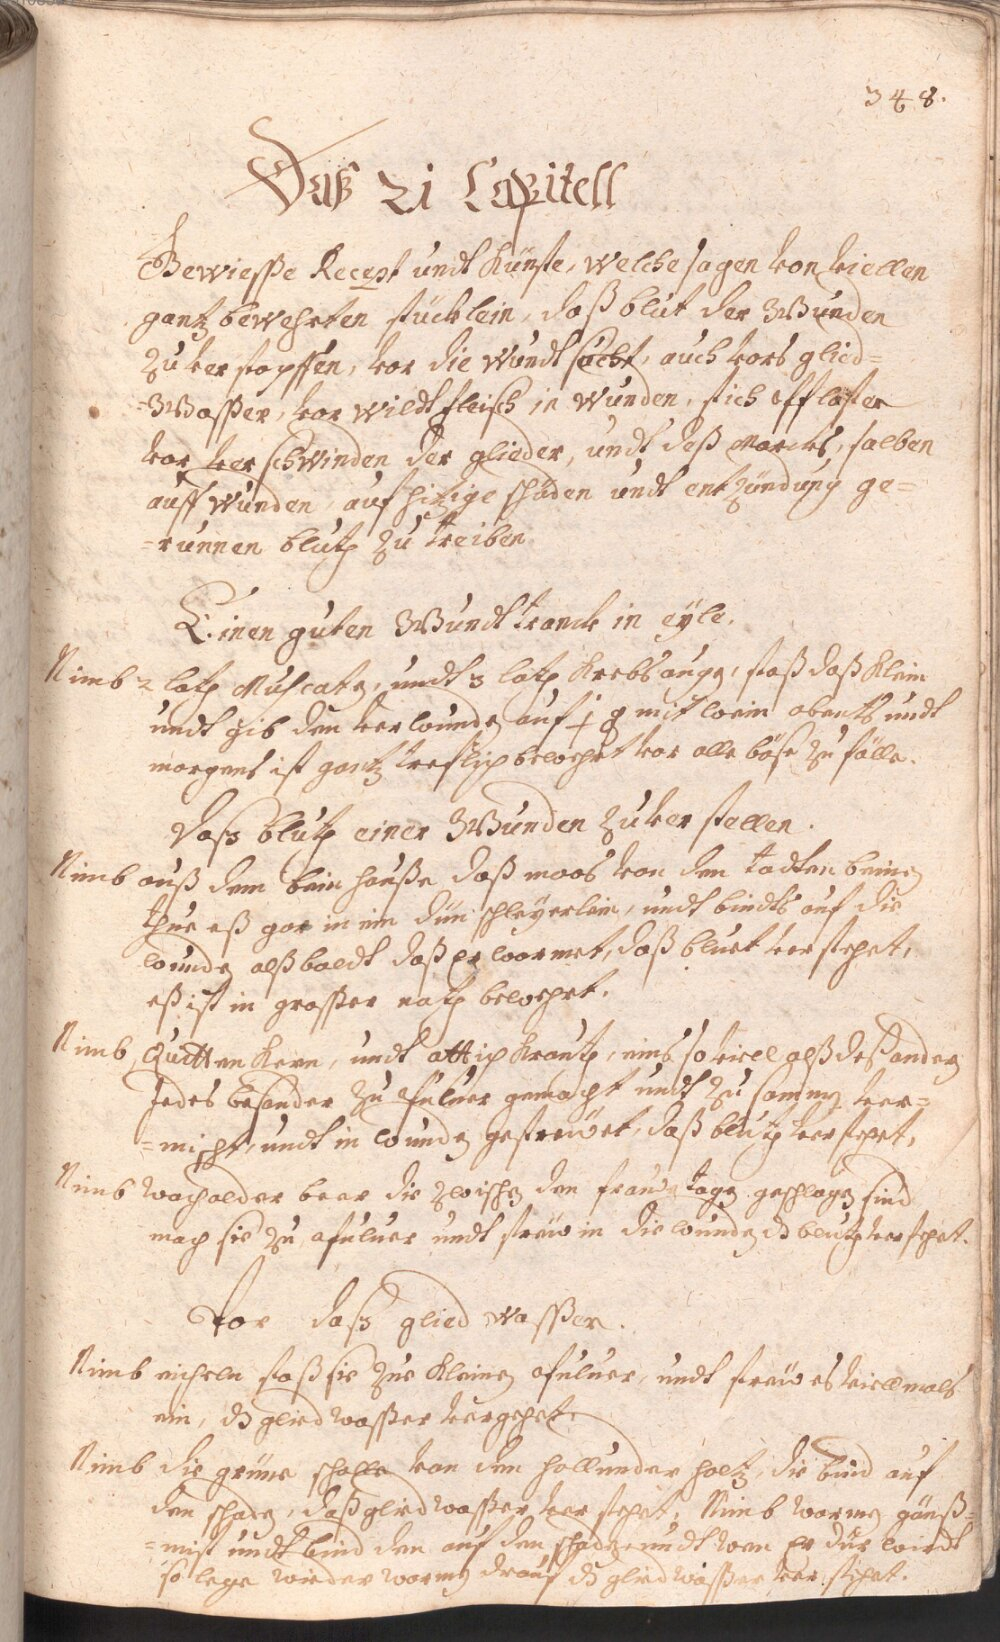 348.
Daß 21 Capitell
Gewiesse Recept undt Künste, welche sagen von viellen
gantz bewehrten stücklein, daß blut der Wunden
zu verstopffen, vor die Wundt sucht, auch vors glied=
=Wasser, vor wildt fleisch in Wunden, stich pflaster
vor verschwinden der glieder, undt deß Marcks, salben
auff wunden, auf hitzige schäden undt entzündung ge=
=runnen bluth zu treiben
Einen guten Wundt tranck in eÿle.
Nimb 2 loth Muscatg, undt 3 loth Krebs auge, stoß daß klein
undt gib den verwunden auf mit wein abents undt
morgens ist gantz trefflich bewehrt vor alle böse zu fälle.
Daß bluth einer Wunden zu verstellen.
Nimb auß dem bein hauße daß moos von den todten beinen
thue eß gar in ein dün schleyerlein, undt bindts auf die
wunden alß baldt daß er warmet, daß bluet verstehet,
eß ist in grosser noth bewehrt.
Nimb Quitten Kern, undt attich Krauth, eins so viell alß deß andern
Jedes besonder zu Pulver gemacht undt zu sammen ver=
=mischt, undt in wunden gestrewet, daß bluth verstehet,
Nimb wacholder beer die zwischen den frawen tagen geschlagen sind
mach sie zu pulver undt strew in die wunden dz bluth verstehet.
Vor daß glied wasser.
Nimb eicheln stoß sie zue kleinen pulver, undt strew es viellmals
ein, dz gliedwasser vergehet.
Nimb die grüne schalle von den hollunder holtz, die bind auf
den schaden, daß gliedwasser verstehet, Nimb warmen gänß=
=mist undt bind den auf den schaden undt wen Er dür wirdt
so lege wieder warmen drauf dz gliedwasser verstehet.